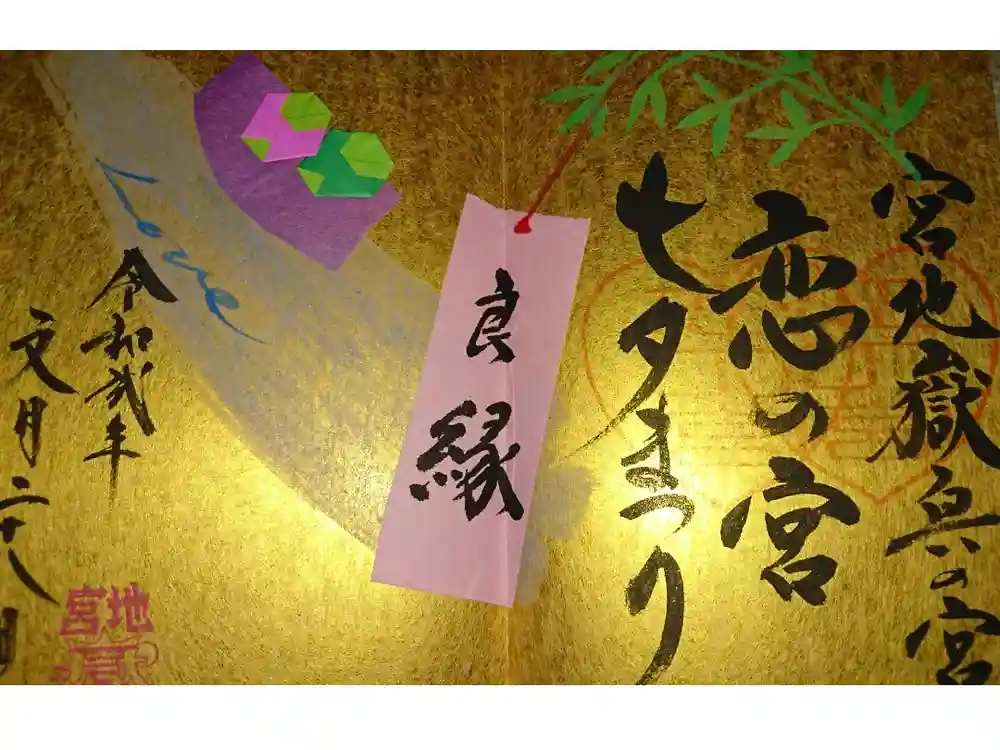 宮地嶽奥の宮
恋の宮
七夕まつり
良縁
Love
令和弐年
文月二十八日
宮地